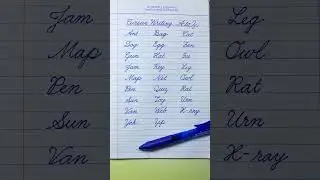 Cursive Writing A to Z
Ant Bag Cat
Dog Egg Fan
Gun Hat Ice
Jam Kep Leg
Map Net Owl
Pen Quiz Rat
Sun Toy Urn
Van Web X-ray
Yak Zip
Jam Leg
Map Owl
Pen Rat
Sun Urn
Van X-ray